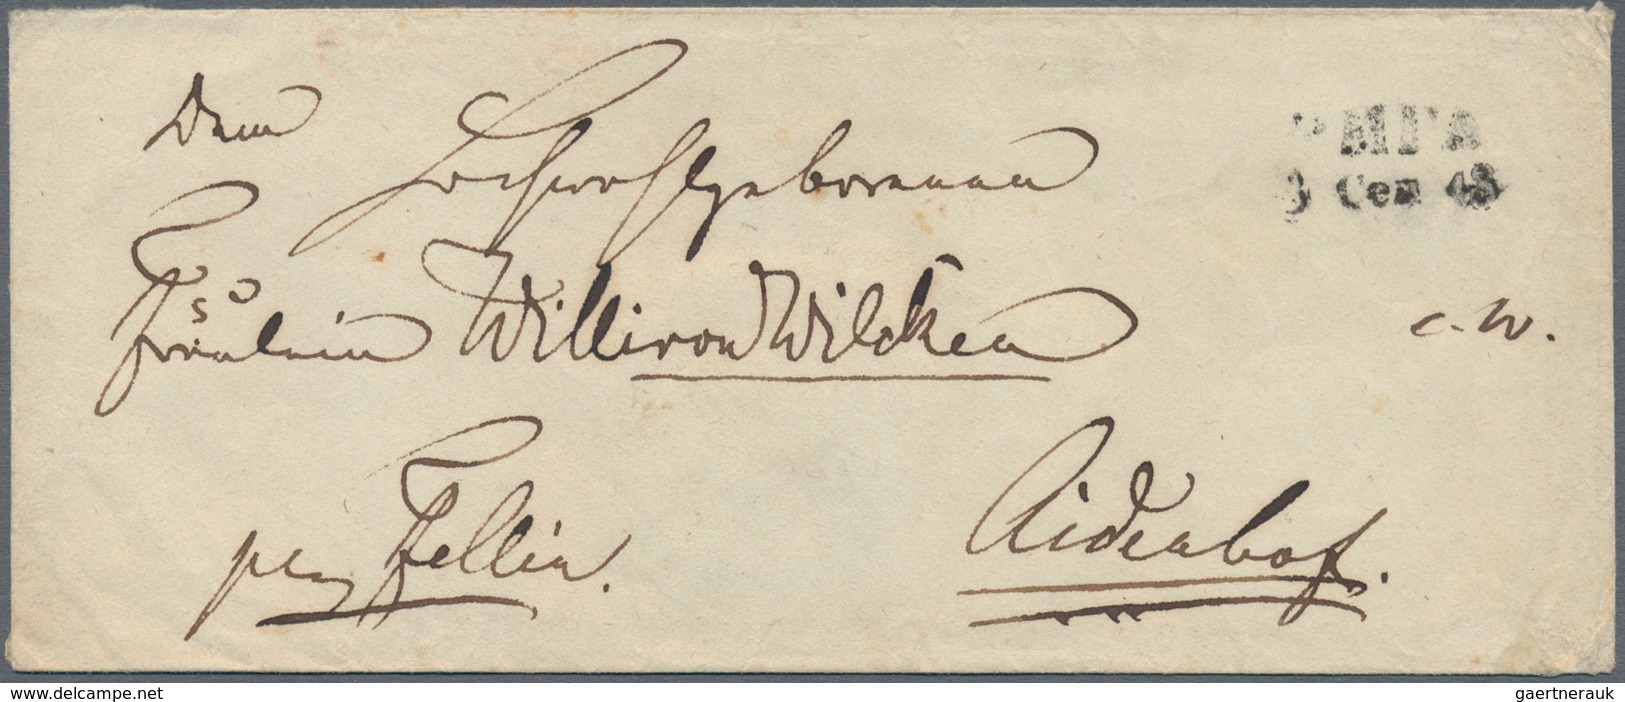 Dem
Hochwohlgeborenen
РИГА
3 Сен 48
Fräulein Willi von Wilcken
c. W.
per Fellin.
Aidenhof.
delcampe.net
gaertnerauk